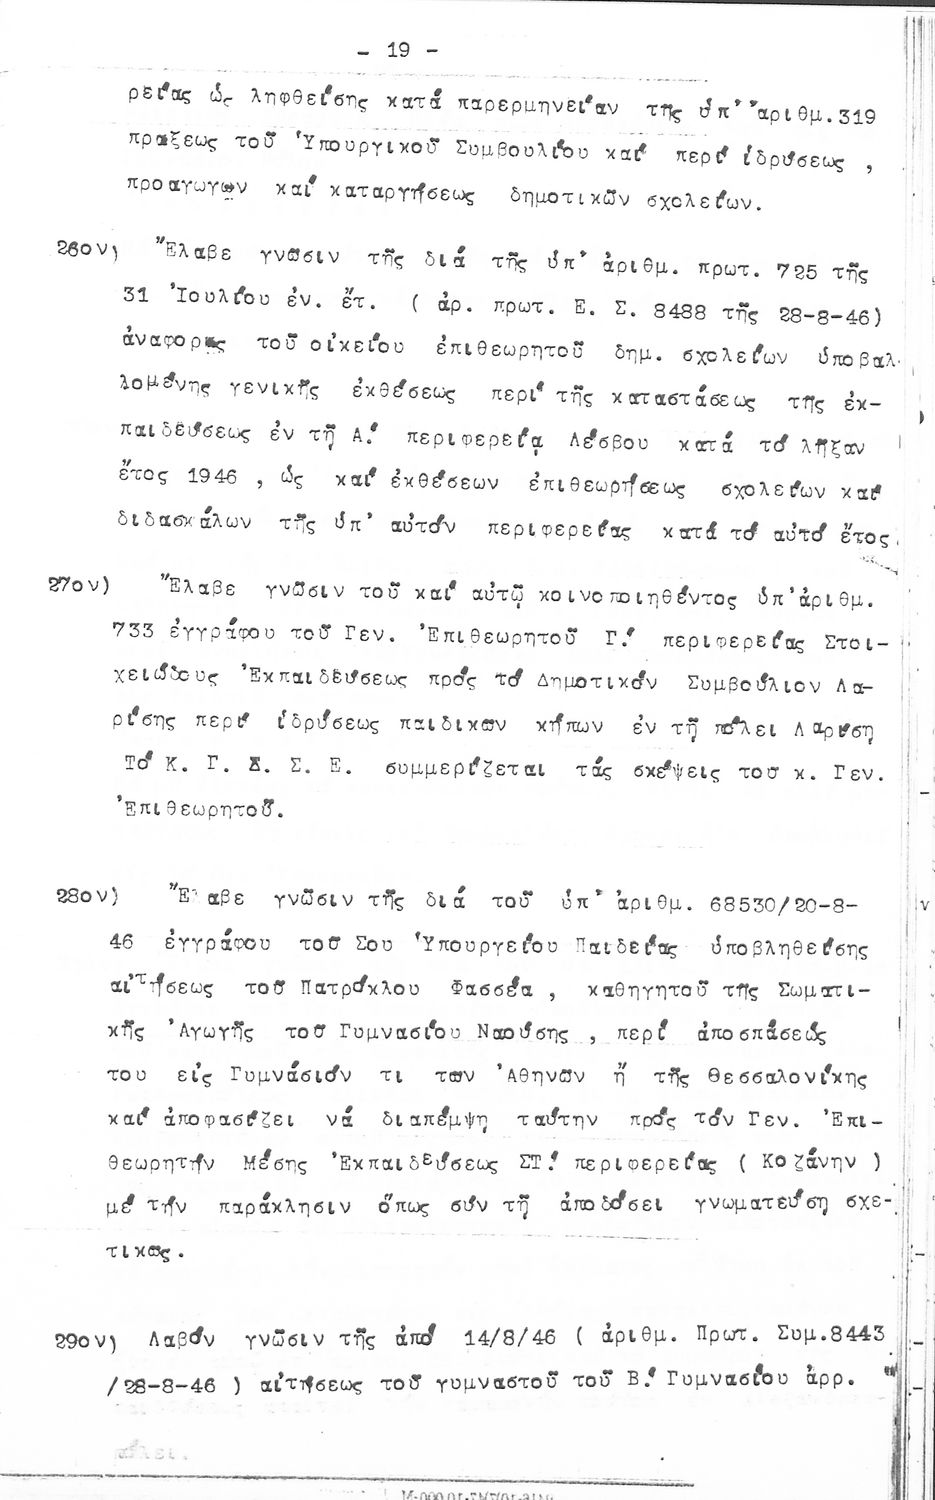 - 19 -
ρείας ὡς ληφθείσης κατά παρερμηνείαν τῆς ὑπ' ἀριθμ.319
πράξεως τοῦ Ὑπουργικοῦ Συμβουλίου καί περί ἱδρύσεως ,
προαγωγῶν καί καταργήσεως δημοτικῶν σχολείων.
26ον) Ἔλαβε γνῶσιν τῆς διά τῆς ὑπ' ἀριθμ. πρωτ. 725 τῆς
31 Ἰουλίου ἐν. ἔτ. ( ἀρ. πρωτ. Ε. Σ. 8488 τῆς 28-8-46)
ἀναφορᾶς τοῦ οἰκείου ἐπιθεωρητοῦ δημ. σχολείων ὑποβαλ-
λομένης γενικῆς ἐκθέσεως περί τῆς καταστάσεως τῆς ἐκ-
παιδεύσεως ἐν τῇ Α! περιφερείᾳ Λέσβου κατά τό λῆξαν
ἔτος 1946 , ὡς καί ἐκθέσεων ἐπιθεωρήσεως σχολείων καί
διδασκάλων τῆς ὑπ' αὐτόν περιφερείας κατά τό αὐτό ἔτος.
27ον) Ἔλαβε γνῶσιν τοῦ καί αὐτῷ κοινοποιηθέντος ὑπ'ἀριθμ.
733 ἐγγράφου τοῦ Γεν. Ἐπιθεωρητοῦ Γ! περιφερείας Στοι-
χειώδους Ἐκπαιδεύσεως πρός τό Δημοτικόν Συμβούλιον Λα-
ρίσης περί ἱδρύσεως παιδικῶν κήπων ἐν τῇ πόλει Λαρίσῃ
Τό Κ. Γ. Δ. Σ. Ε. συμμερίζεται τάς σκέψεις του κ. Γεν.
Ἐπιθεωρητοῦ.
28ον) Ἔλαβε γνῶσιν τῆς διά τοῦ ὑπ' ἀριθμ. 68530/20-8-
46 ἐγγράφου τοῦ Σου Ὑπουργείου Παιδείας ὑποβληθείσης
αἰτήσεως τοῦ Πατρόκλου Φασσέα , καθηγητοῦ τῆς Σωματι-
κῆς Ἀγωγῆς τοῦ Γυμνασίου Ναούσης , περί ἀποσπάσεώς
του εἰς Γυμνάσιόν τι των Ἀθηνῶν ἤ τῆς Θεσσαλονίκης
καί ἀποφασίζει νά διαπέμψῃ ταύτην πρός τόν Γεν. Ἐπι-
θεωρητήν Μέσης Ἐκπαιδεύσεως ΣΤ! περιφερείας ( Κοζάνην )
μέ τήν παράκλησιν ὅπως σύν τῇ ἀποδόσει γνωματεύσῃ σχε-
τικῶς.
29ον) Λαβόν γνῶσιν τῆς ἀπό 14/8/46 ( ἀριθμ. Πρωτ. Συμ.8443
/28-8-46 ) αἰτήσεως τοῦ γυμναστοῦ τοῦ Β! Γυμνασίου ἀρρ.